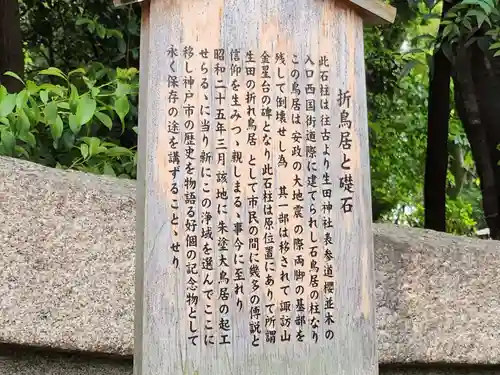 折鳥居と礎石
此石柱は今ころより生田神社表参道櫻並木の
入口西国街道際に建てられし石鳥居の柱なり
この鳥居は安政の大地震の際両脚の基部を
残して倒壊せし為 其一部は移されて諏訪山
金星台の碑となり此石柱は原位置にありて所謂
生田の折れ鳥居 として市民の間に幾多の傳説と
信仰を生みつゝ親しまるゝに至れり
昭和二十五年三月該地に朱塗大鳥居の起工
せらるゝに当り新にこの浄域を選んでここに
移し神戸市の歴史を物語る好個の記念物として
永く保存の途を講ずることゝせり